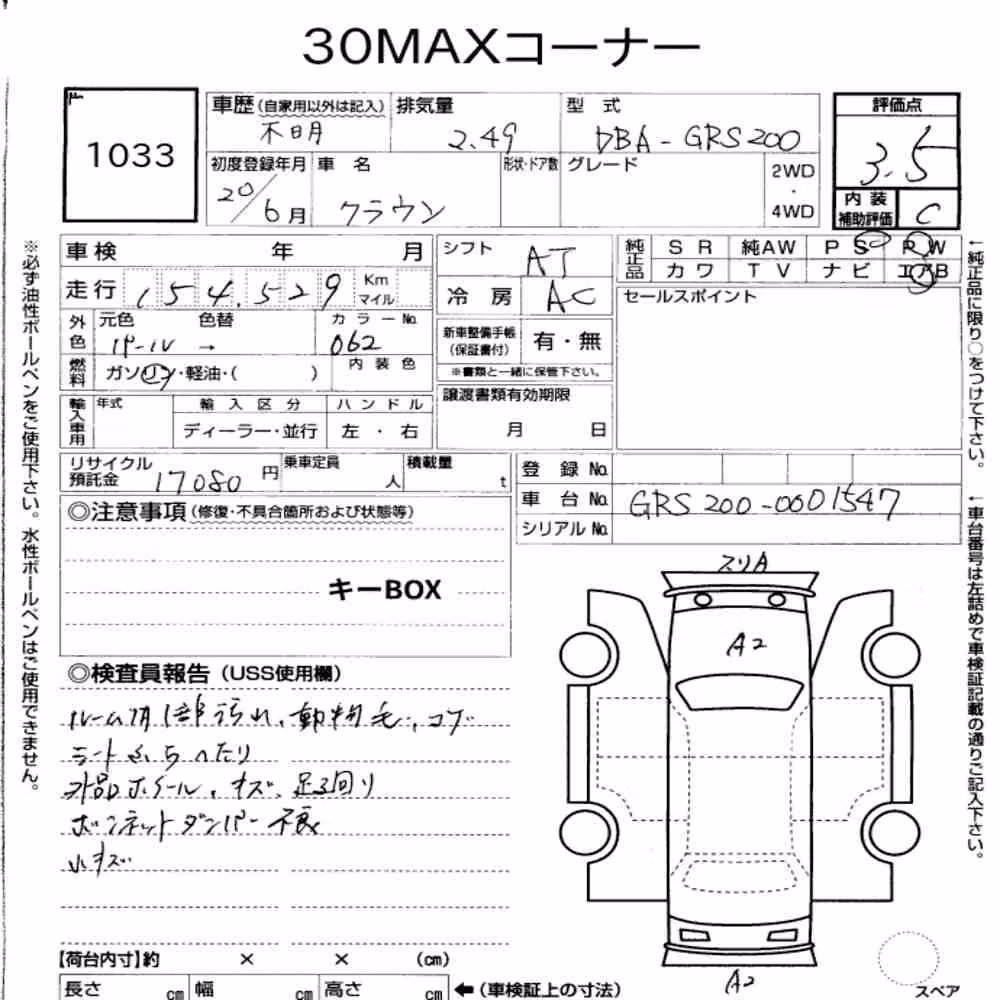 30MAXコーナー
1033
車歴(自家用以外は記入)
排気量
2.49
型 式
DBA-GRS200
評価点
3.5
初度登録年月
20/6月
車 名
クラウン
形状・ドア数
グレード
2WD
・
4WD
内装
補助評価
C
車検 年 月
シフト
AT
純正品
SR 純AW PS PW
カワ TV ナビ エアB
走行 154,529 Km
マイル
冷房
AC
セールスポイント
外色
元色 色替
パール →
カラーNo.
062
新車整備手帳
(保証書付)
有・無
※書類と一緒に保管下さい。
燃料
ガソリン・軽油・( )
内装色
譲渡書類有効期限
月 日
輸入車用
年式
輸入区分
ハンドル
ディーラー・並行
左・右
リサイクル
預託金
17080円
乗車定員
人
積載量
t
登録No.
車台No.
GRS200-0001547
シリアルNo.
◎注意事項(修復・不具合箇所および状態等)
キーBOX
◎検査員報告(USS使用欄)
ルーム内1部汚れ、動物毛、コゲ
シート
へたり
外品ホイール、キズ、足廻り
ボンネットダンパー不良
小キズ
スリA
A2
A2
【荷台内寸】約 × × (cm)
長さ cm 幅 cm 高さ cm ←(車検証上の寸法)
スペア
※必ず油性ボールペンをご使用下さい。水性ボールペンはご使用できません。
←純正品に限り○をつけて下さい。
←車台番号は左詰めで車検証記載の通りご記入下さい。